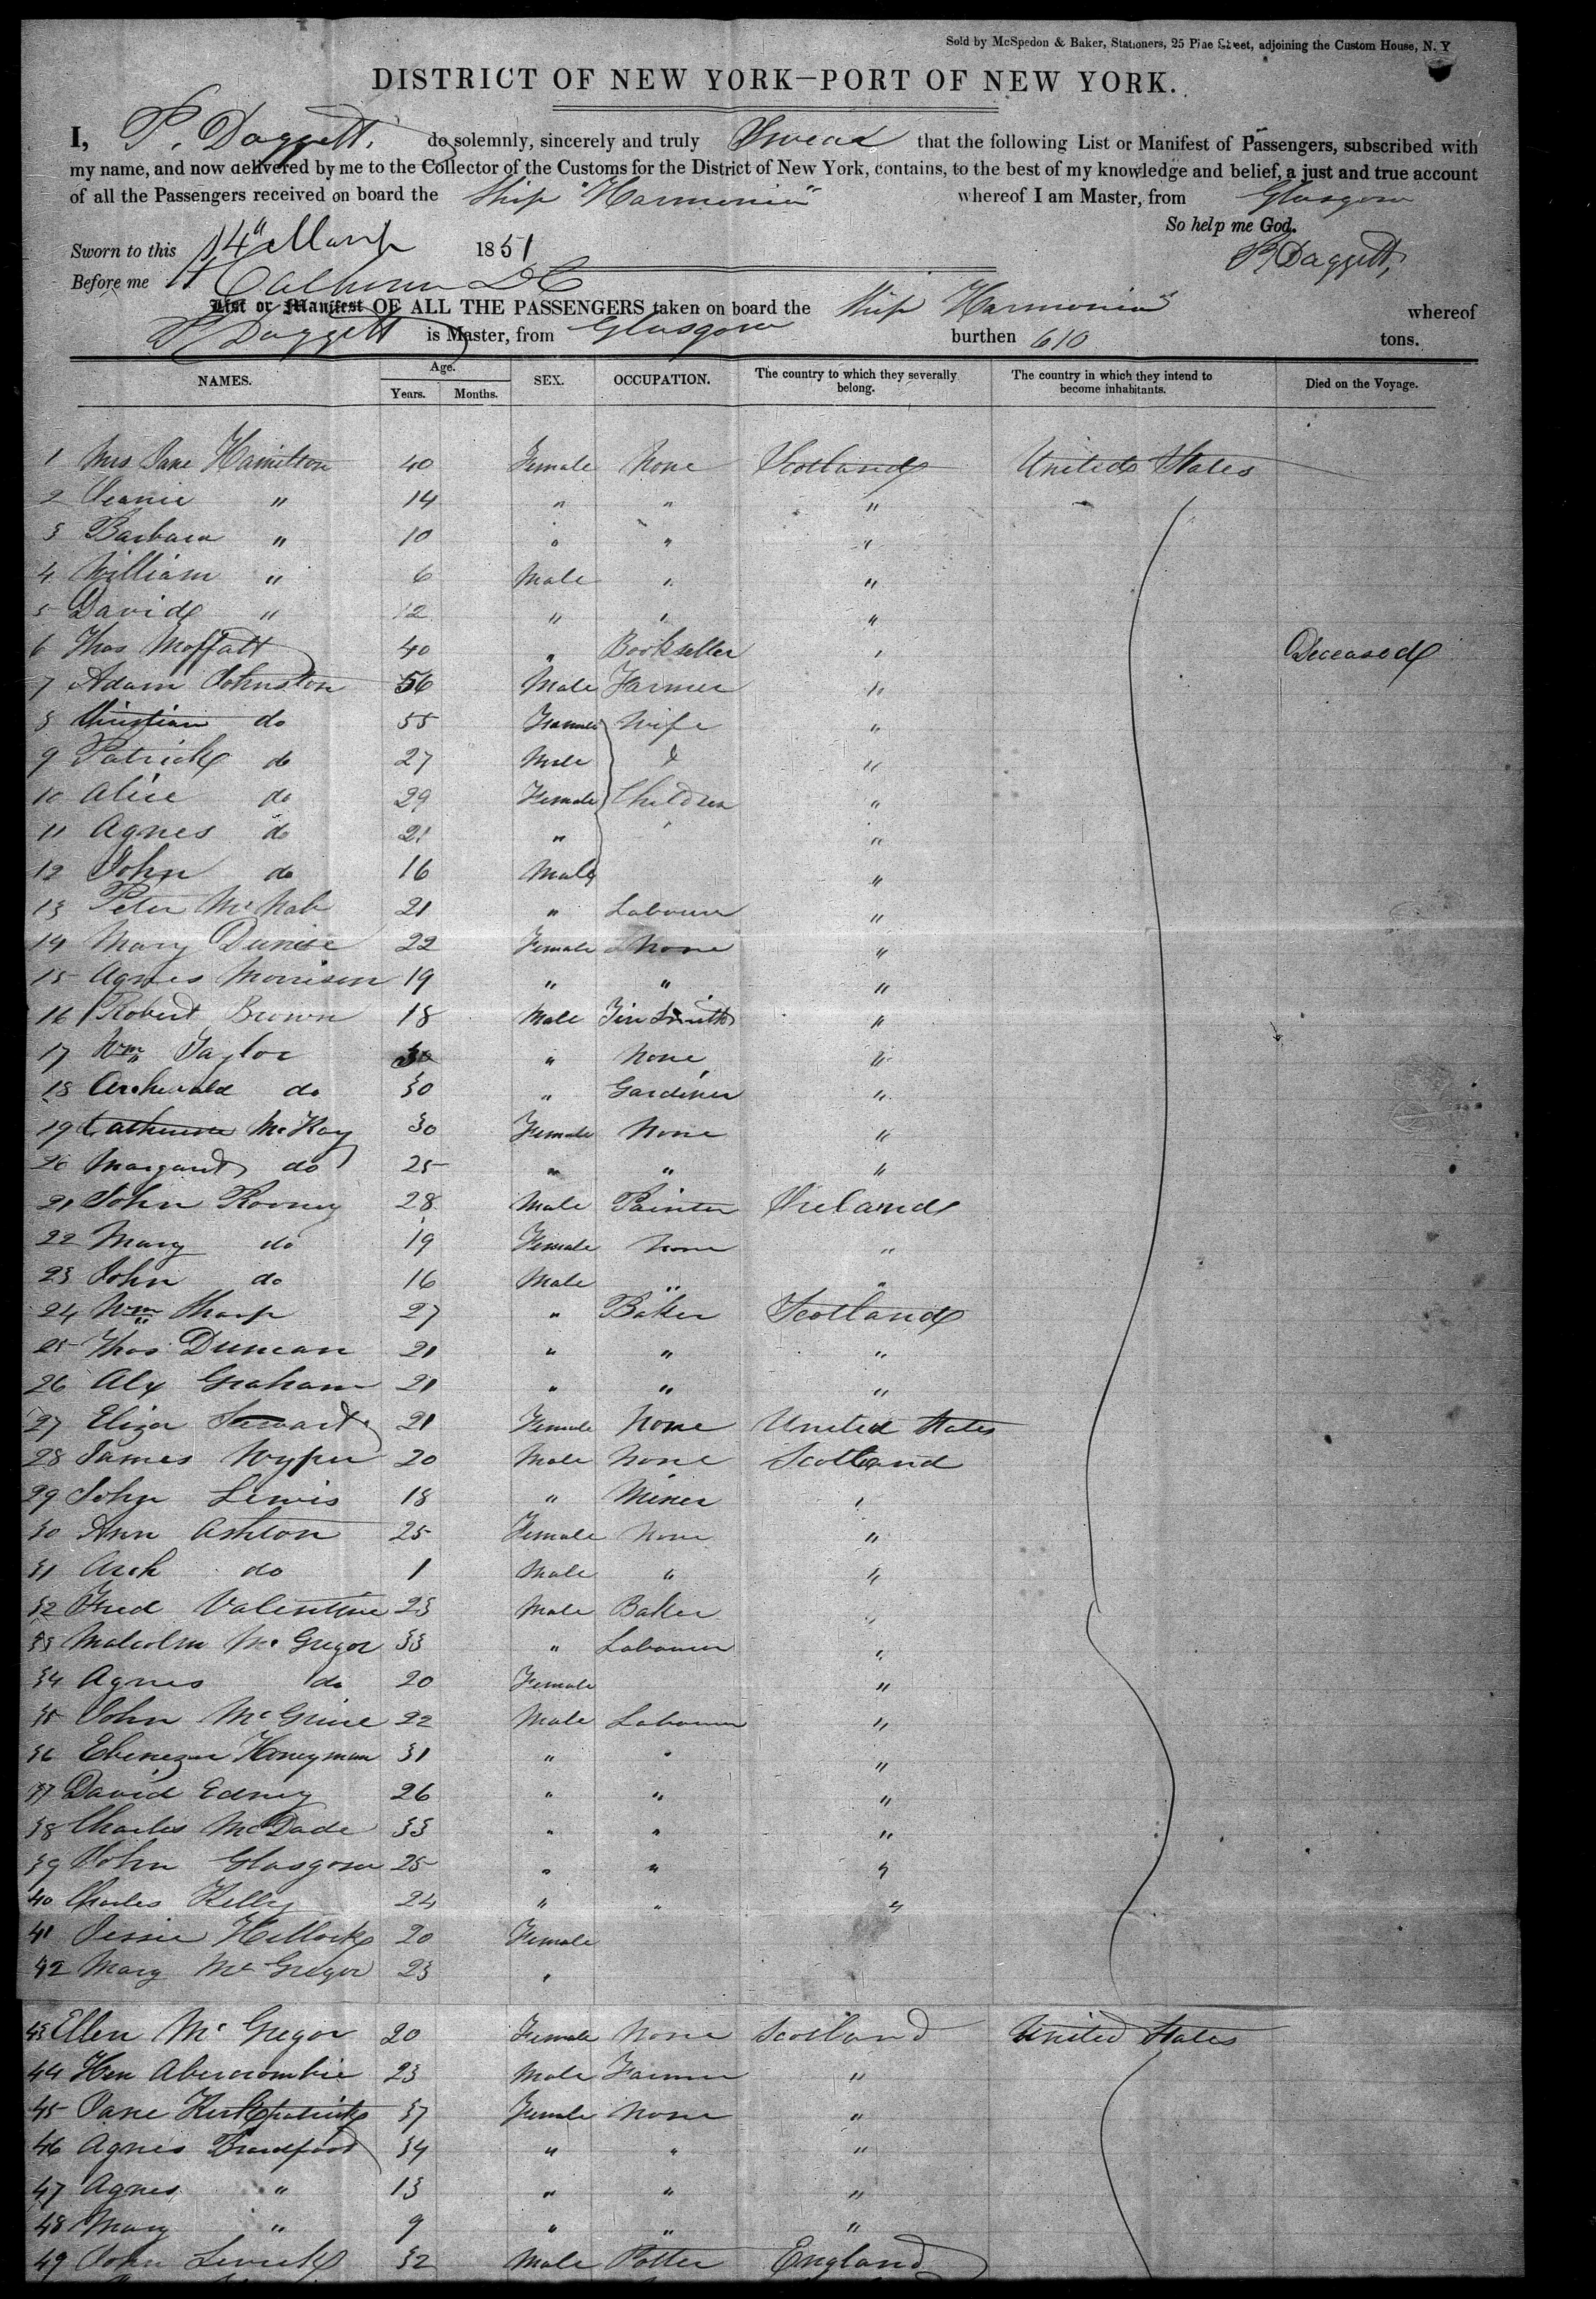 Sold by McSpedon & Baker, Stationers, 25 Pine Street, adjoining the Custom House, N. Y
DISTRICT OF NEW YORK—PORT OF NEW YORK.
I, P. Daggett, do solemnly, sincerely and truly Swear that the following List or Manifest of Passengers, subscribed with
my name, and now delivered by me to the Collector of the Customs for the District of New York, contains, to the best of my knowledge and belief, a just and true account
of all the Passengers received on board the Ship "Harmonia" whereof I am Master, from Glasgow
So help me God.
Sworn to this 14" March 1851
P. Daggett,
Before me Calhoun DC
List or Manifest OF ALL THE PASSENGERS taken on board the Ship Harmonia whereof
P Daggett is Master, from Glasgow burthen 610 tons.
NAMES. Age. Years. Months. SEX. OCCUPATION. The country to which they severally belong. The country in which they intend to become inhabitants. Died on the Voyage.
1 Mrs Jane Hamilton 40 Female None Scotland United States
2 Jeanie " 14 " " "
3 Barbara " 10 " " "
4 William " 6 Male " "
5 David " 12 " " "
6 Thos Moffatt 40 " Bookseller " Deceased
7 Adam Johnston 56 Male Farmer "
8 Christian do 55 Female Wife "
9 Patrick do 27 Male & "
10 Alice do 29 Female Children "
11 Agnes do 21 " "
12 John do 16 Male "
13 Peter McNab 21 " Labourer "
14 Mary 22 Female None "
15 Agnes Morrison 19 " " "
16 Robert Brown 18 Male Tin Smith "
17 Wm Taylor " None "
18 Archerald do 30 " Gardiner "
19 Catherine McKay 30 Female None "
20 Margaret do 25 " " "
21 John Rooney 28 Male Painter Ireland
22 Mary do 19 Female None "
23 John do 16 Male " "
24 Wm Sharp 27 " Baker Scotland
25 Thos Duncan 21 " " "
26 Alex Graham 21 " " "
27 Eliza Stewart 21 Female None United States
28 James Wyper 20 Male None Scotland
29 John Lewis 18 " Miner "
30 Ann Ashton 25 Female None "
31 Arch do 1 Male " "
32 Fred Valentine 23 Male Baker "
33 Malcolm McGregor 33 " Labourer "
34 Agnes do 20 Female "
35 John 22 Male Labourer "
36 Ebenezer Honeyman 31 " " "
37 David Edney 26 " " "
38 Charles McDade 33 " " "
39 John Glasgow 25 " " "
40 Charles Kelly 24 " " "
41 Jessie 20 Female
42 Mary McGregor 23 "
43 Ellen McGregor 20 Female None Scotland United States
44 Hen Abercrombie 23 Male Farmer "
45 Jane Kirkpatrick 37 Female None "
46 Agnes 34 " " "
47 Agnes " 13 " " "
48 Mary " 9 " " "
49 John 32 Male Potter England